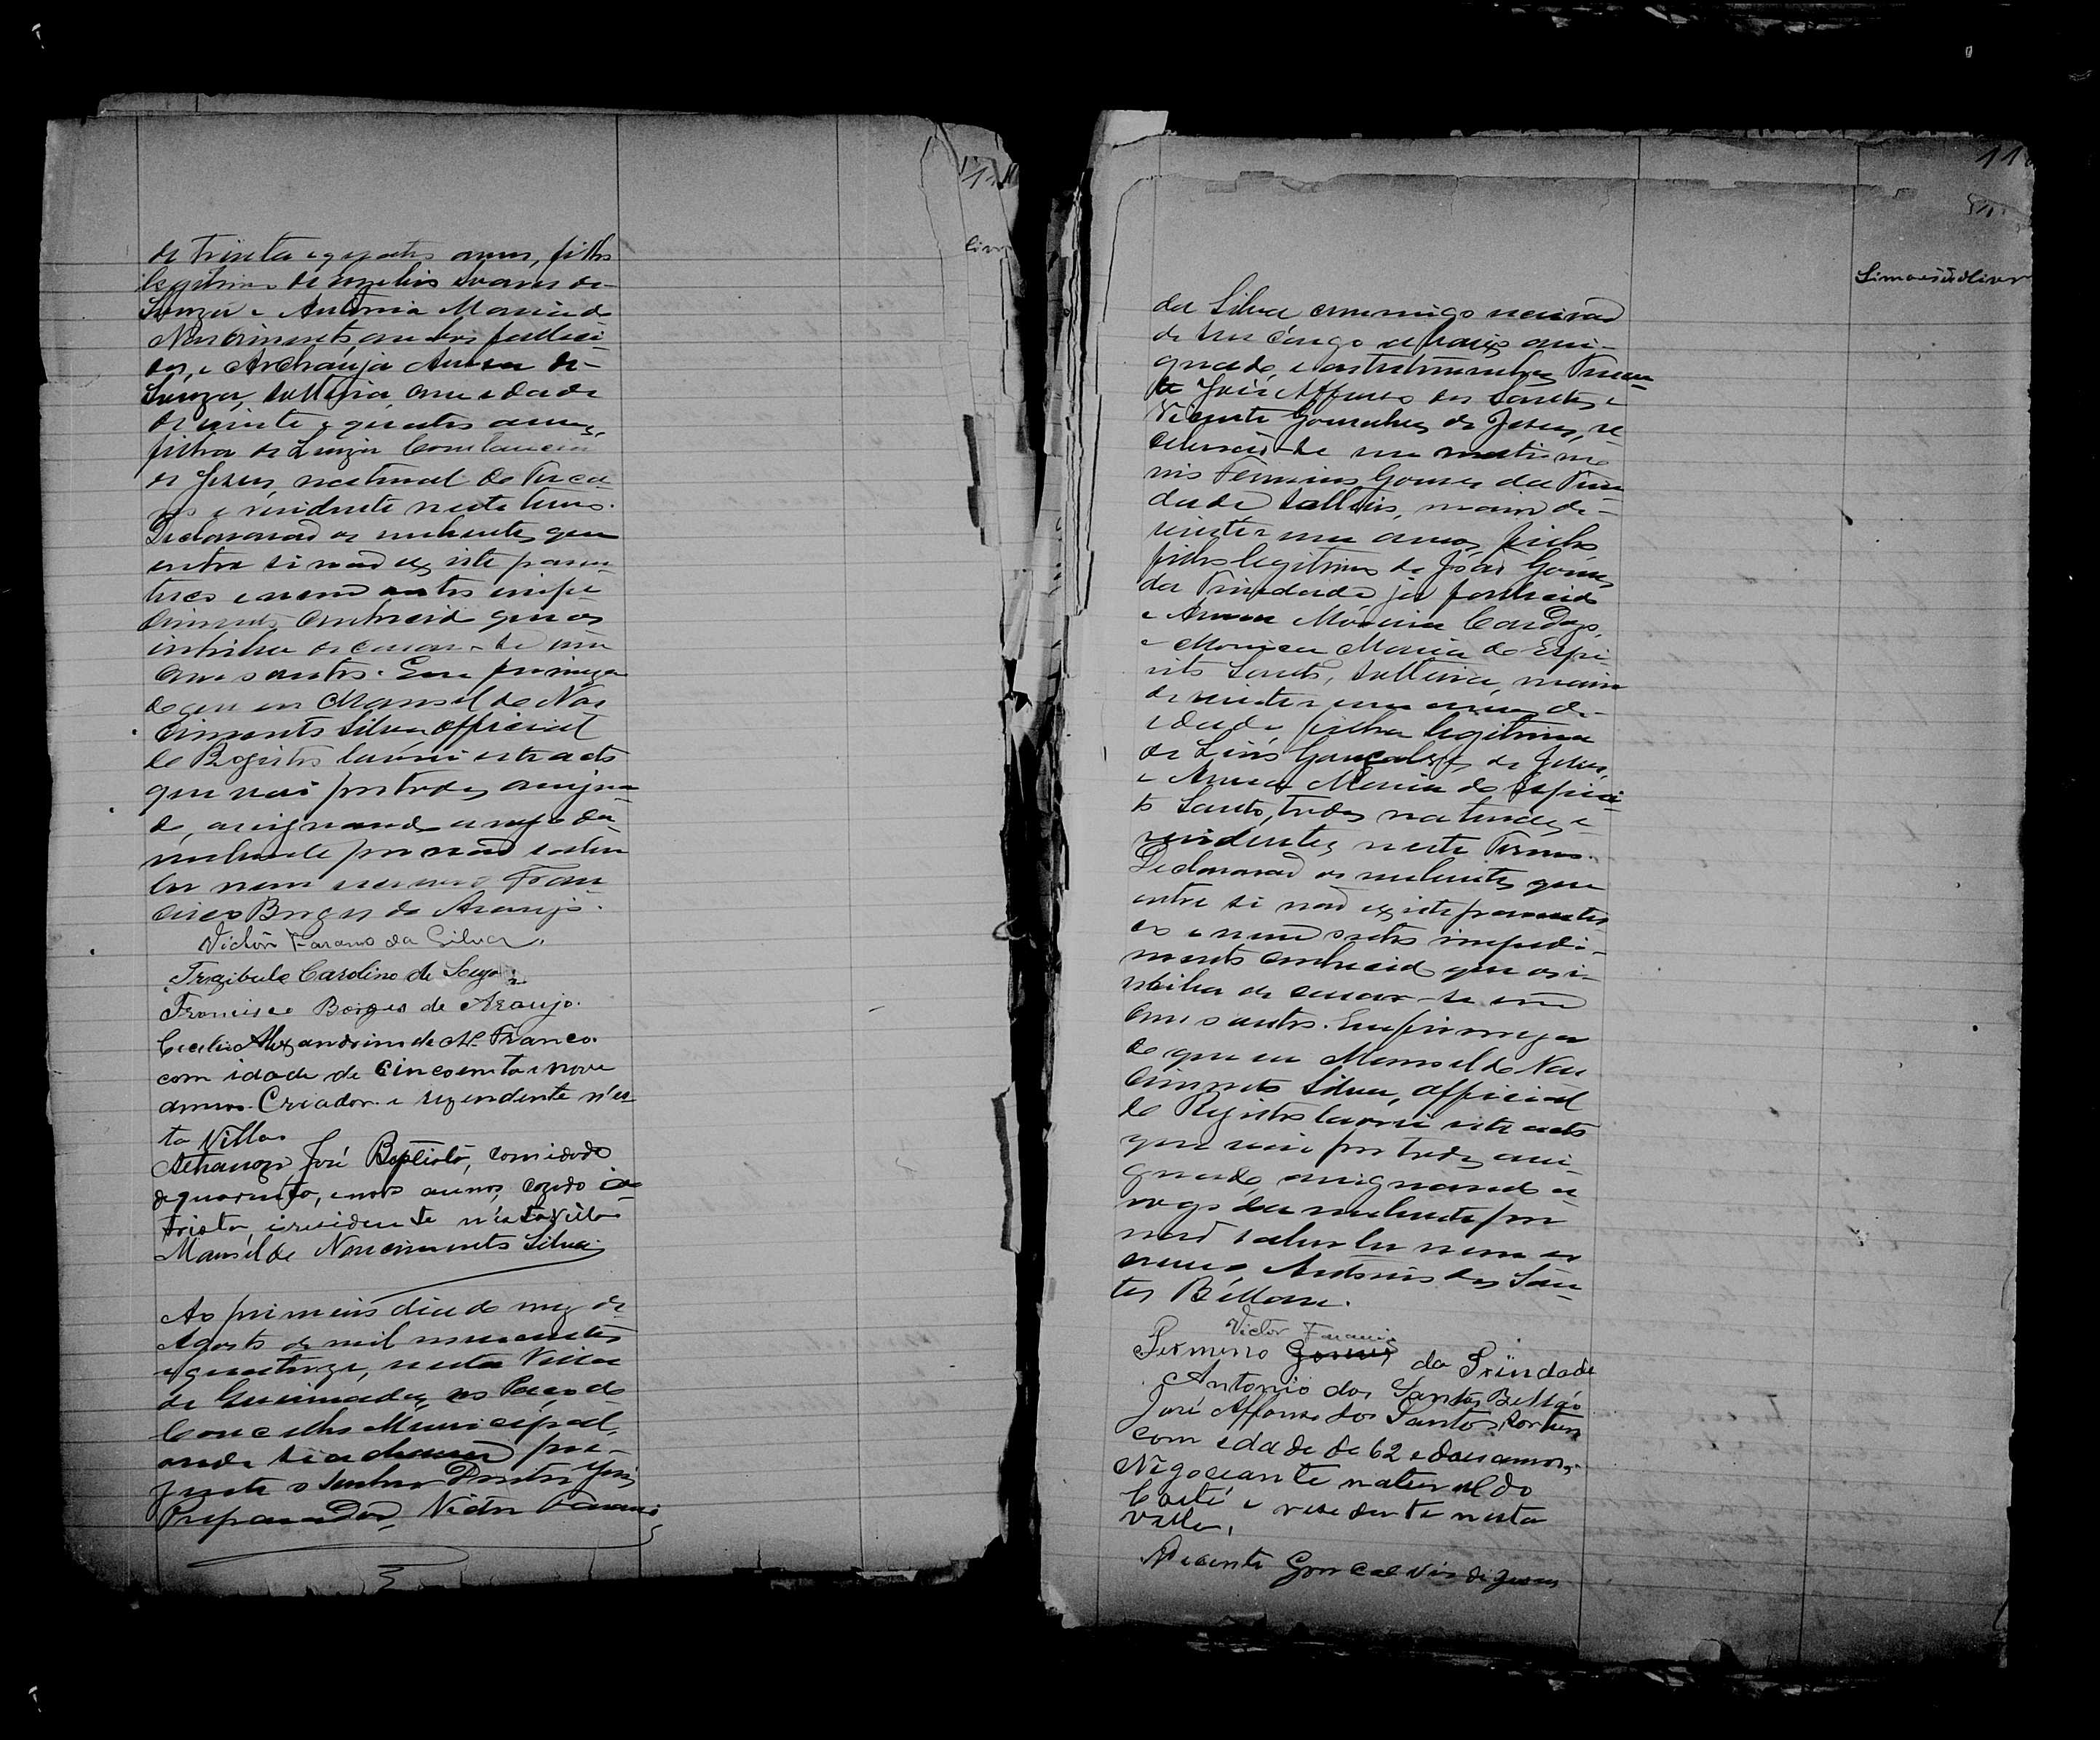 de trinta e quatro annos, filho
legitimo de Rogerio Soares de
Souza e Antonia Maria do
Nascimento, ambos falleci
dos, e Archanja Aurea de
Souza, solteira, com edade
de vinte e quatro annos,
filha de Luiza Constancia
de Jesus, natural de Tuca
no e residente neste termo.
Declararão os nubentes que
entre si não existe paren
tesco e nem outro impe
dimento conhecido que os
inhiba de casar-se um
com o outro. Em firmeza
do que eu Manoel do Nas
cimento Silva official
do Registro lavrei este acto
que vai por todos assigna
do, assignando a rogo da
nubente por não saber
ler nem escrever Fran
cisco Borges de Araujo.
Victor Farano da Silva.
Trazibulo Carolino de Souza
Francisco Borges de Araujo.
Cecilio Alexandrino de Mº Franco.
com idade de cincoenta e nove
annos. Criador e rezendente n'es
ta Villa
José Baptista, com idade
de quarenta, e nove annos,
e residente n'esta Villa
Manoel do Nascimento Silva
Ao primeiro dia do mez de
Agosto de mil novecentos
e quatorze, nesta Villa
de Queimadas, no Paço do
Conselho Municipal,
onde se achava pre-
zente o senhor Doutor Juiz
Preparador, Victor Farano
11
Simões d'Oliver
da Silva commigo escrivão
de seu cargo abaixo assi-
gnado, e as testemunhas Tenen
te José Affonso dos Santos e
Vicente Gonsalves de Jesus, re
ceberão-se em matrimo
nio Fermino Gomes da Trin
dade solteiro, maior de
vinte e um annos, filho
filho legitimo de João Gomes
da Trindade já fallecido
e Anna Monica Cardozo,
e Monica Maria do Espi
rito Santo, solteira, maior
de vinte e um annos de
edade, filha legitima
de Lino Gonçalves de Jesus,
e Anna Maria do Espiri-
to Santo, todos naturaes e
residentes neste Termo.
Declararão os nubentes que
entre si não existe parentes
co e nem outro impedi-
mento conhecido que os i-
nhiba de casar-se um
com o outro. Em firmeza
do que eu Manoel do Nas
cimento Silva, official
do Registro lavrei este acto
que vai por todos assi-
gnado, assignando a
rogo da nubente por
não saber ler nem es
crever Antonio dos San-
tos Béllão.
Victor Farano
Permino Gomes da Trindade
Antonio dos Santos Bellão
José Affonso dos Santos
com edade de 62 e dous annos,
Nigociante natural do
Coité e residente nesta
Villa,
Vicente Goncalves de Jesus